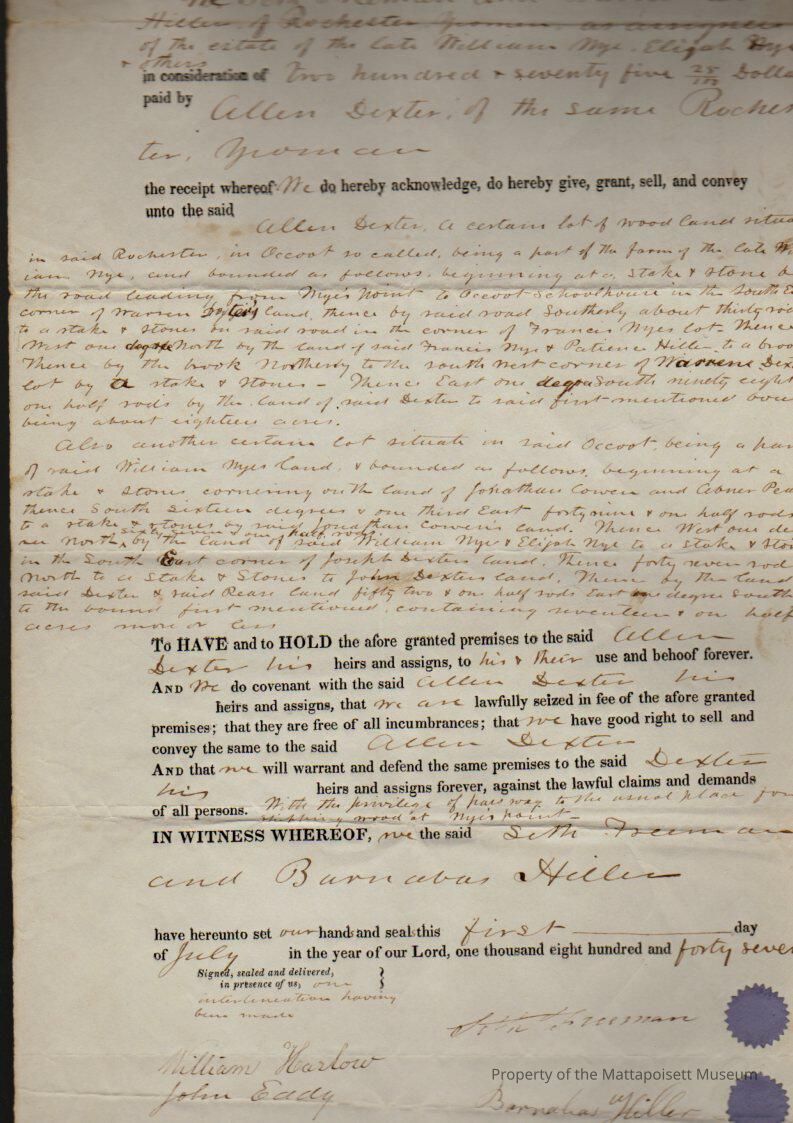 Hiller, of Rochester Yeomen, as assignees
of the estate of the late William Nye, Elijah Nye
& others
in consideration of two hundred & seventy five 25/100 Dolla
paid by Allen Dexter, of the same Roches
ter, Yeoman
the receipt whereof We do hereby acknowledge, do hereby give, grant, sell, and convey
unto the said Allen Dexter, a certain lot of wood land situa
in said Rochester, in Occoot so called, being a part of the farm of the late Wi
iam Nye, and bounded as follows, beginning at a Stake & Stone b
the road leading from Nye's Point to Occoot Schoolhouse in the South E
corner of Warren Dexter's land, thence by said road Southerly about thirty rod
to a stake & Stones in said road in the corner of Francis Nyes lot. Thence
West one degree North by the land of said Francis Nye & Patience Hiller to a broo
Thence by the brook Northerly to the south West corner of Warrens Dex
lot by a stake & Stones – Thence East one degree South ninety eight
one half rods by the land of said Dexter to said first mentioned boun
being about eighteen acres.
Also another certain lot situate in said Occoot, being a par
of said William Nyes land, & bounded as follows, beginning at a
stake & Stones cornering with land of Jonathan Cowen and Abner Pea
thence South Sixteen degrees & one third East forty nine & one half rods
to a stake & stones by said Jonathan Cowen's land. Thence West one de
ree North, by the land of said William Nye & Elijah Nye to a Stake & Ston
in the South East corner of Joseph Dexters land. Thence forty seven rod
North to a Stake & Stones to John Dexters land, Thence by the land
said Dexter & said Pease land fifty two & one half rods East one degree South
to the bound first mentioned, containing seventeen & one half
acres more or less
To HAVE and to HOLD the afore granted premises to the said Allen
Dexter his heirs and assigns, to his & their use and behoof forever.
AND We do covenant with the said Allen Dexter his
heirs and assigns, that we are lawfully seized in fee of the afore granted
premises; that they are free of all incumbrances; that we have good right to sell and
convey the same to the said Allen Dexter
AND that we will warrant and defend the same premises to the said Dexter
his heirs and assigns forever, against the lawful claims and demands
of all persons. With the privilege of pass way to the usual place for
shipping wood at Nyes point –
IN WITNESS WHEREOF, we the said Seth Freeman
and Barnabas Hiller
have hereunto set our hands and seals this first day
of July in the year of our Lord, one thousand eight hundred and forty seven
Signed, sealed and delivered,
in presence of us, one
interlineation having
been made
Seth Freeman
William Harlow
John Eddy
Property of the Mattapoisett Museum
Barnabas Hiller